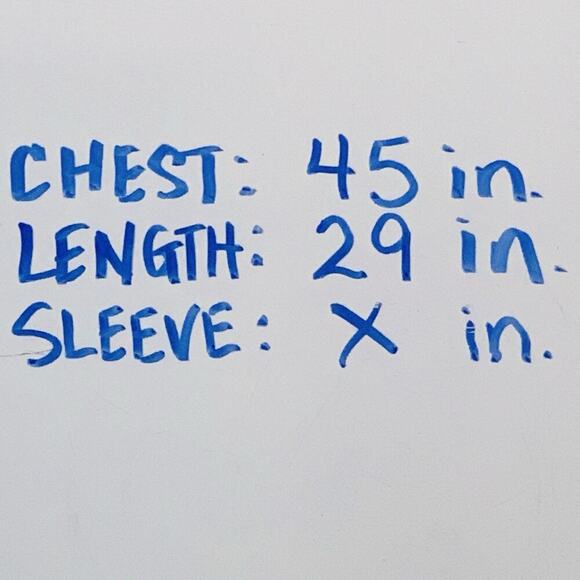 CHEST: 45 in.
LENGTH: 29 in.
SLEEVE: X in.